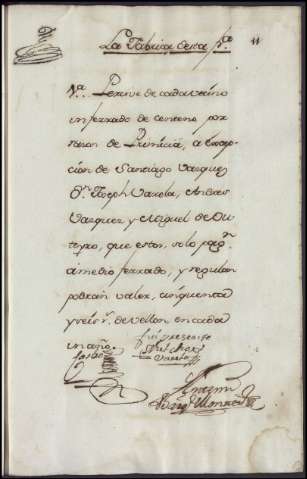 La Fabrica desta fra 11
1ª.. Percive de cada vecino
un ferrado de centeno por
razon de Primicia, a excep-
cion de Santiago Vazquez
Dn Joseph Varela, Andres
Vazquez y Miguel de Ou-
teyro, que estos, solo pagn
a medio ferrado, y regulan
podran valer, cinquenta
y seis rs. de vellon en cada
un año.
fui presente
Varela
Antonio